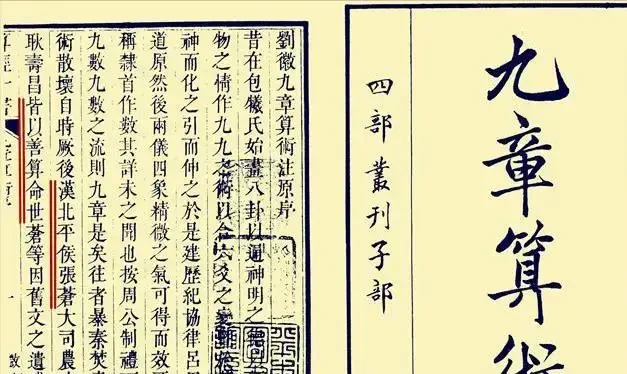 九章算術
四部叢刊子部
劉徽九章算術注原序
昔在包犧氏始畫八卦以通神明之德
物之情作九九之術以合六爻之變
神而化之引而伸之於是建歷紀協律呂
道原然後兩儀四象精微之氣可得而效
稱隸首作數其詳未之聞也按周公制禮
九數九數之流則九章是矣往者暴秦焚
術散壞自時厥後漢北平侯張蒼大司農
耿壽昌皆以善算命世蒼等因舊文之遺
一